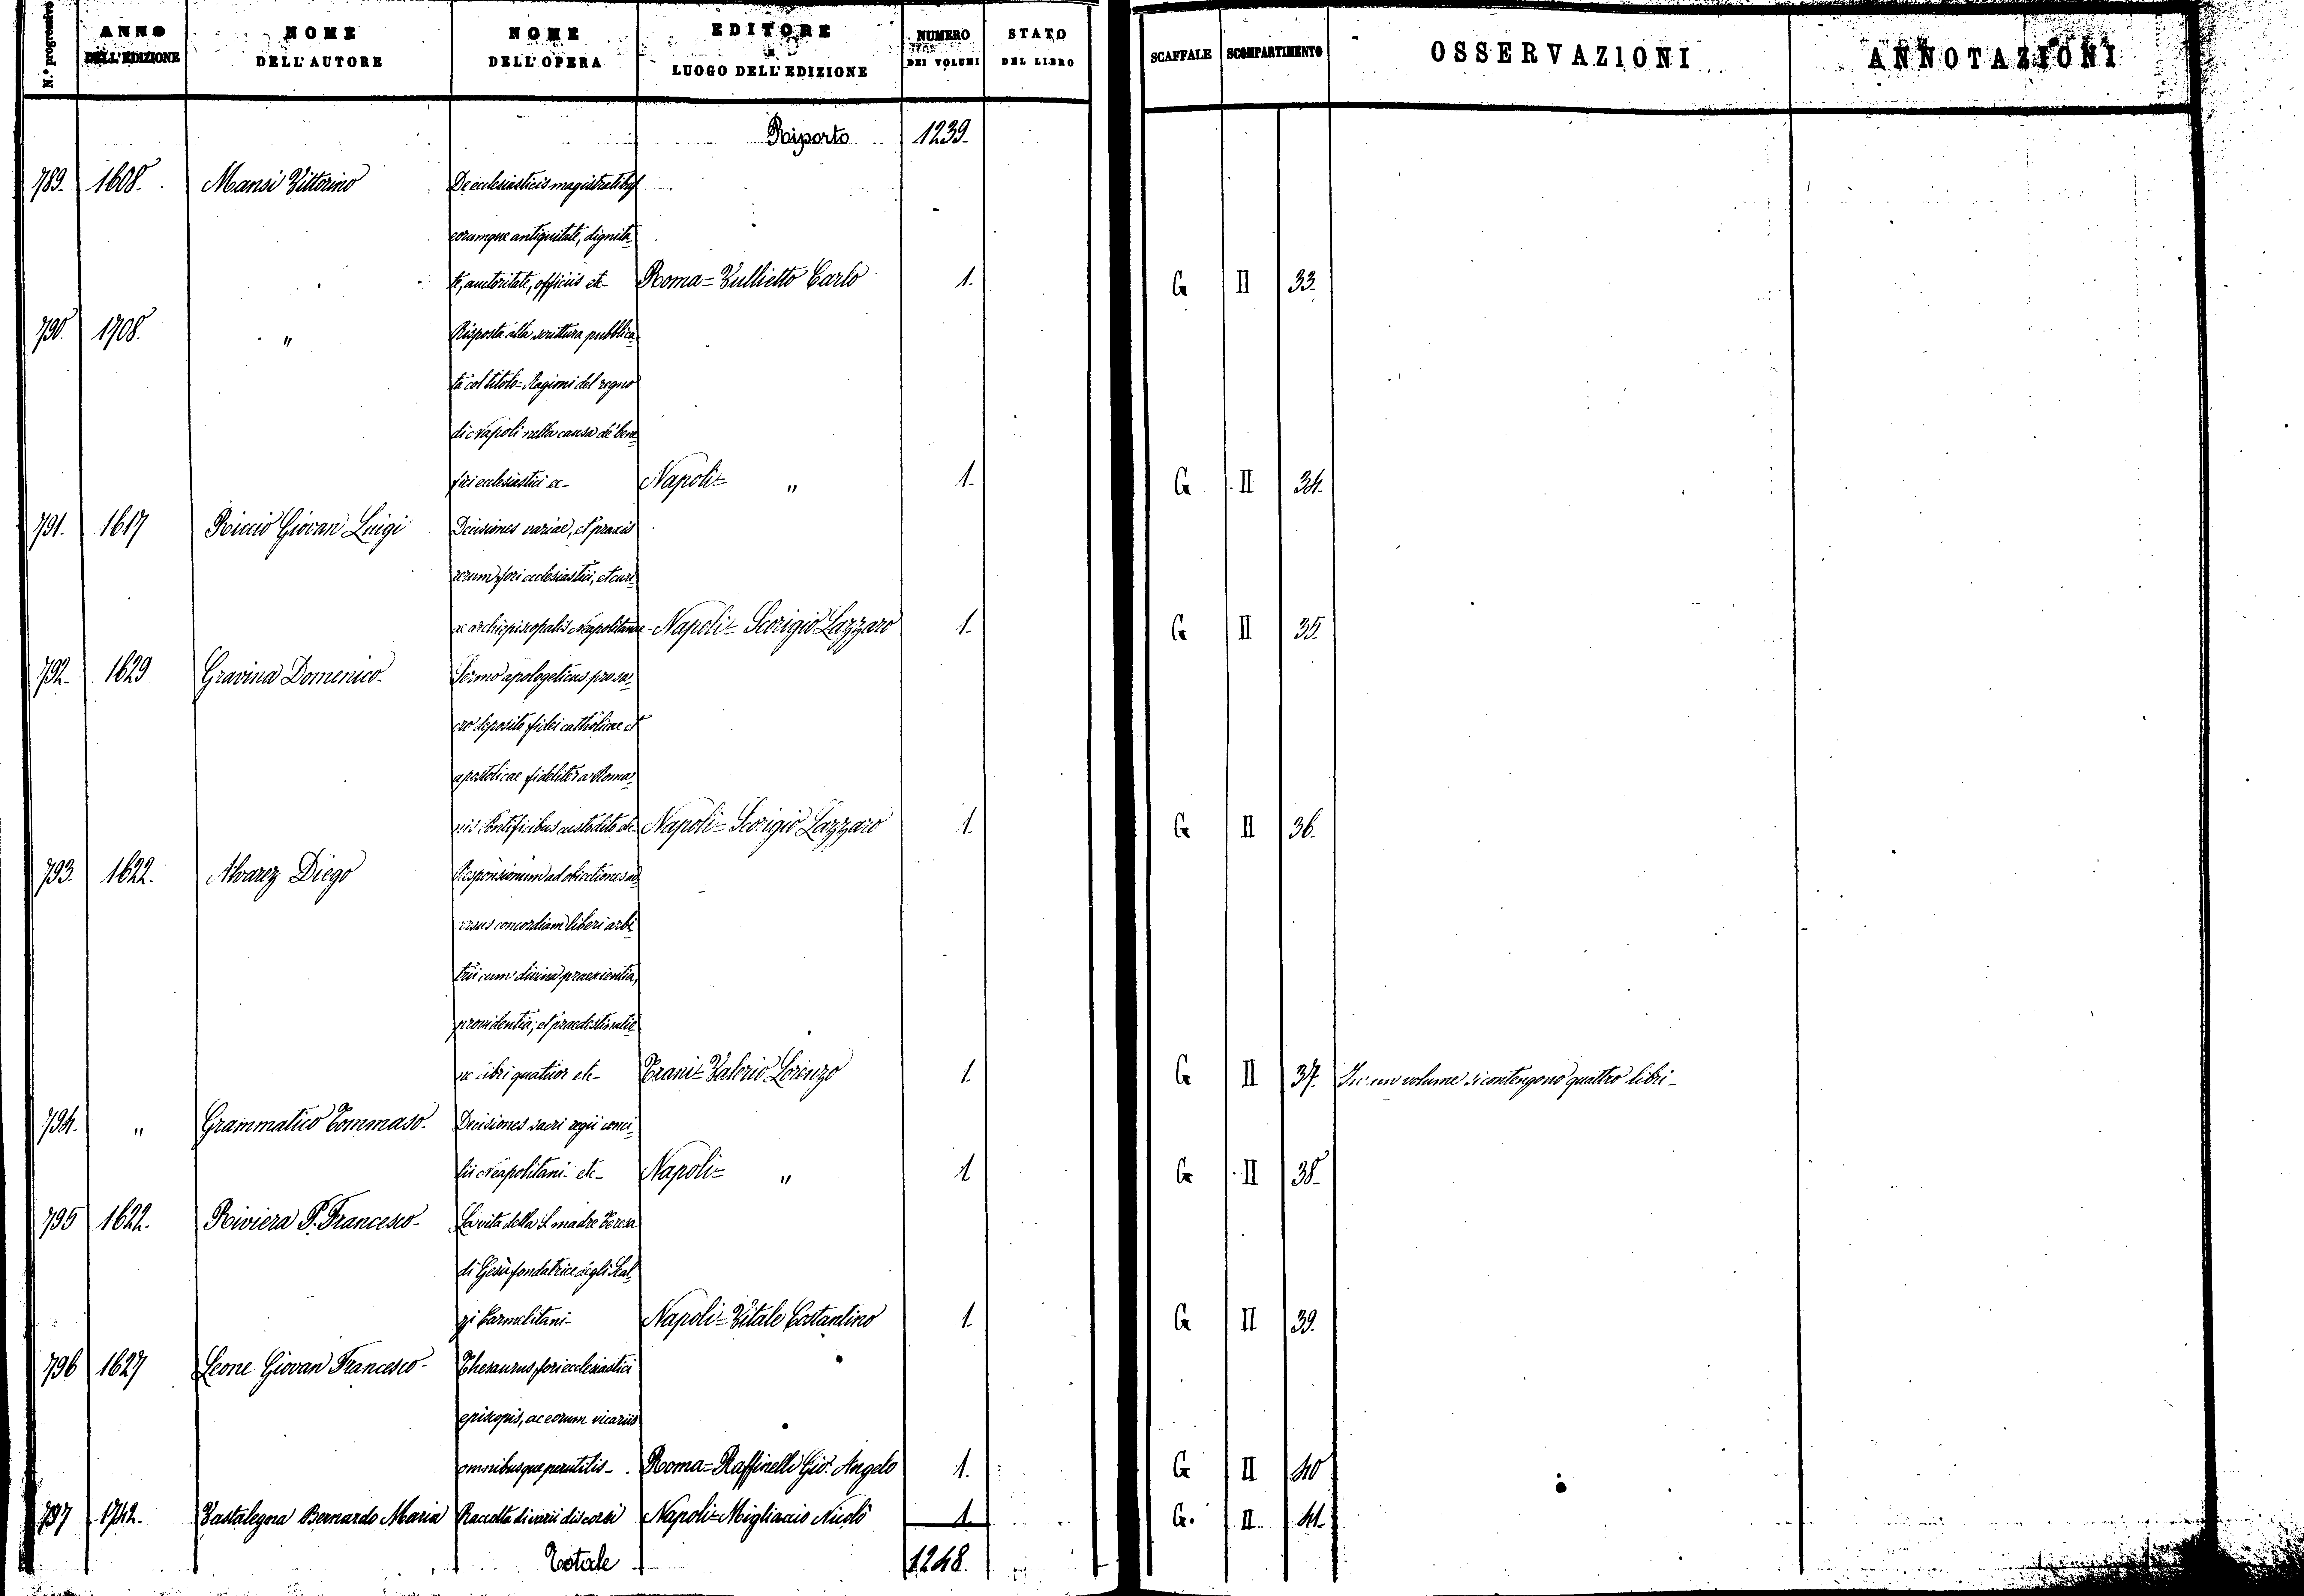 N.° progressivo ANNO DELL'EDIZIONE NOME DELL'AUTORE NOME DELL'OPERA EDITORE E LUOGO DELL'EDIZIONE NUMERO DEI VOLUMI STATO DEL LIBRO SCAFFALE SCOMPARTIMENTO OSSERVAZIONI ANNOTAZIONI
Riporto 1239.
789. 1608. Mansi Vittorino De ecclesiasticis magistratibus
eorumque antiquitate, dignita-
te, auctoritate, officiis etc- Roma= Vullietto Carlo 1. G II 33.
790. 1708. " Risposta alla scrittura pubblica-
ta col titolo= Ragioni del regno
di Napoli nella causa de' bene-
fici ecclesiastici ec- Napoli= " 1. G II 34.
791. 1617 Riccio Giovan Luigi Decisiones variae, et praxis
rerum fori ecclesiastici, et curi-
ae archiepiscopalis Neapolitanae- Napoli= Scorigio Lazzaro 1. G II 35.
792. 1629 Gravina Domenico- Sermo apologeticus pro sa-
cro deposito fidei catholicae et
apostolicae fideliter a Roma-
nis Pontificibus custodito etc- Napoli= Scorigio Lazzaro 1. G II 36.
793. 1622. Alvarez Diego Responsionum ad obiectiones ad-
versus concordiam liberi arbi-
trii cum divina praescientia,
providentia, et praedestinatio-
ne libri quatuor etc- Trani= Valerio Lorenzo 1. G II 37. In un volume si contengono quattro libri-
794. " Grammatico Tommaso- Decisiones sacri regii conci-
lii Neapolitani- etc- Napoli= " 1 G II 38.
795 1622. Riviera P. Francesco- La vita della S. madre Teresa
di Gesù fondatrice degli Scal-
zi Carmelitani- Napoli= Vitale Costantino 1. G II 39.
796 1627 Leone Giovan Francesco- Thesaurus fori ecclesiastici
episcopis, ac eorum vicariis
omnibusque perutilis- Roma= Raffinelli Gio: Angelo 1. G II 40
797 1742. Vastalegna Bernardo Maria Raccolta di varii discorsi Napoli= Migliaccio Nicolò 1 G. II 41.
Totale 1248.